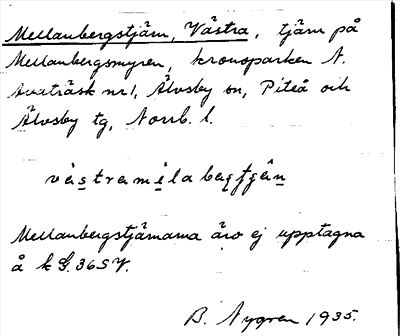 Mellanbergstjärn, Västra, tjärn på
Mellanbergsmyren, kronoparken N.
Avaträsk nr 1, Älvsby sn, Piteå och
Älvsby tg, Norrb. l.
Mellanbergstjärnarna äro ej upptagna
å k G. 36 S V.
B. Nygren 1935.